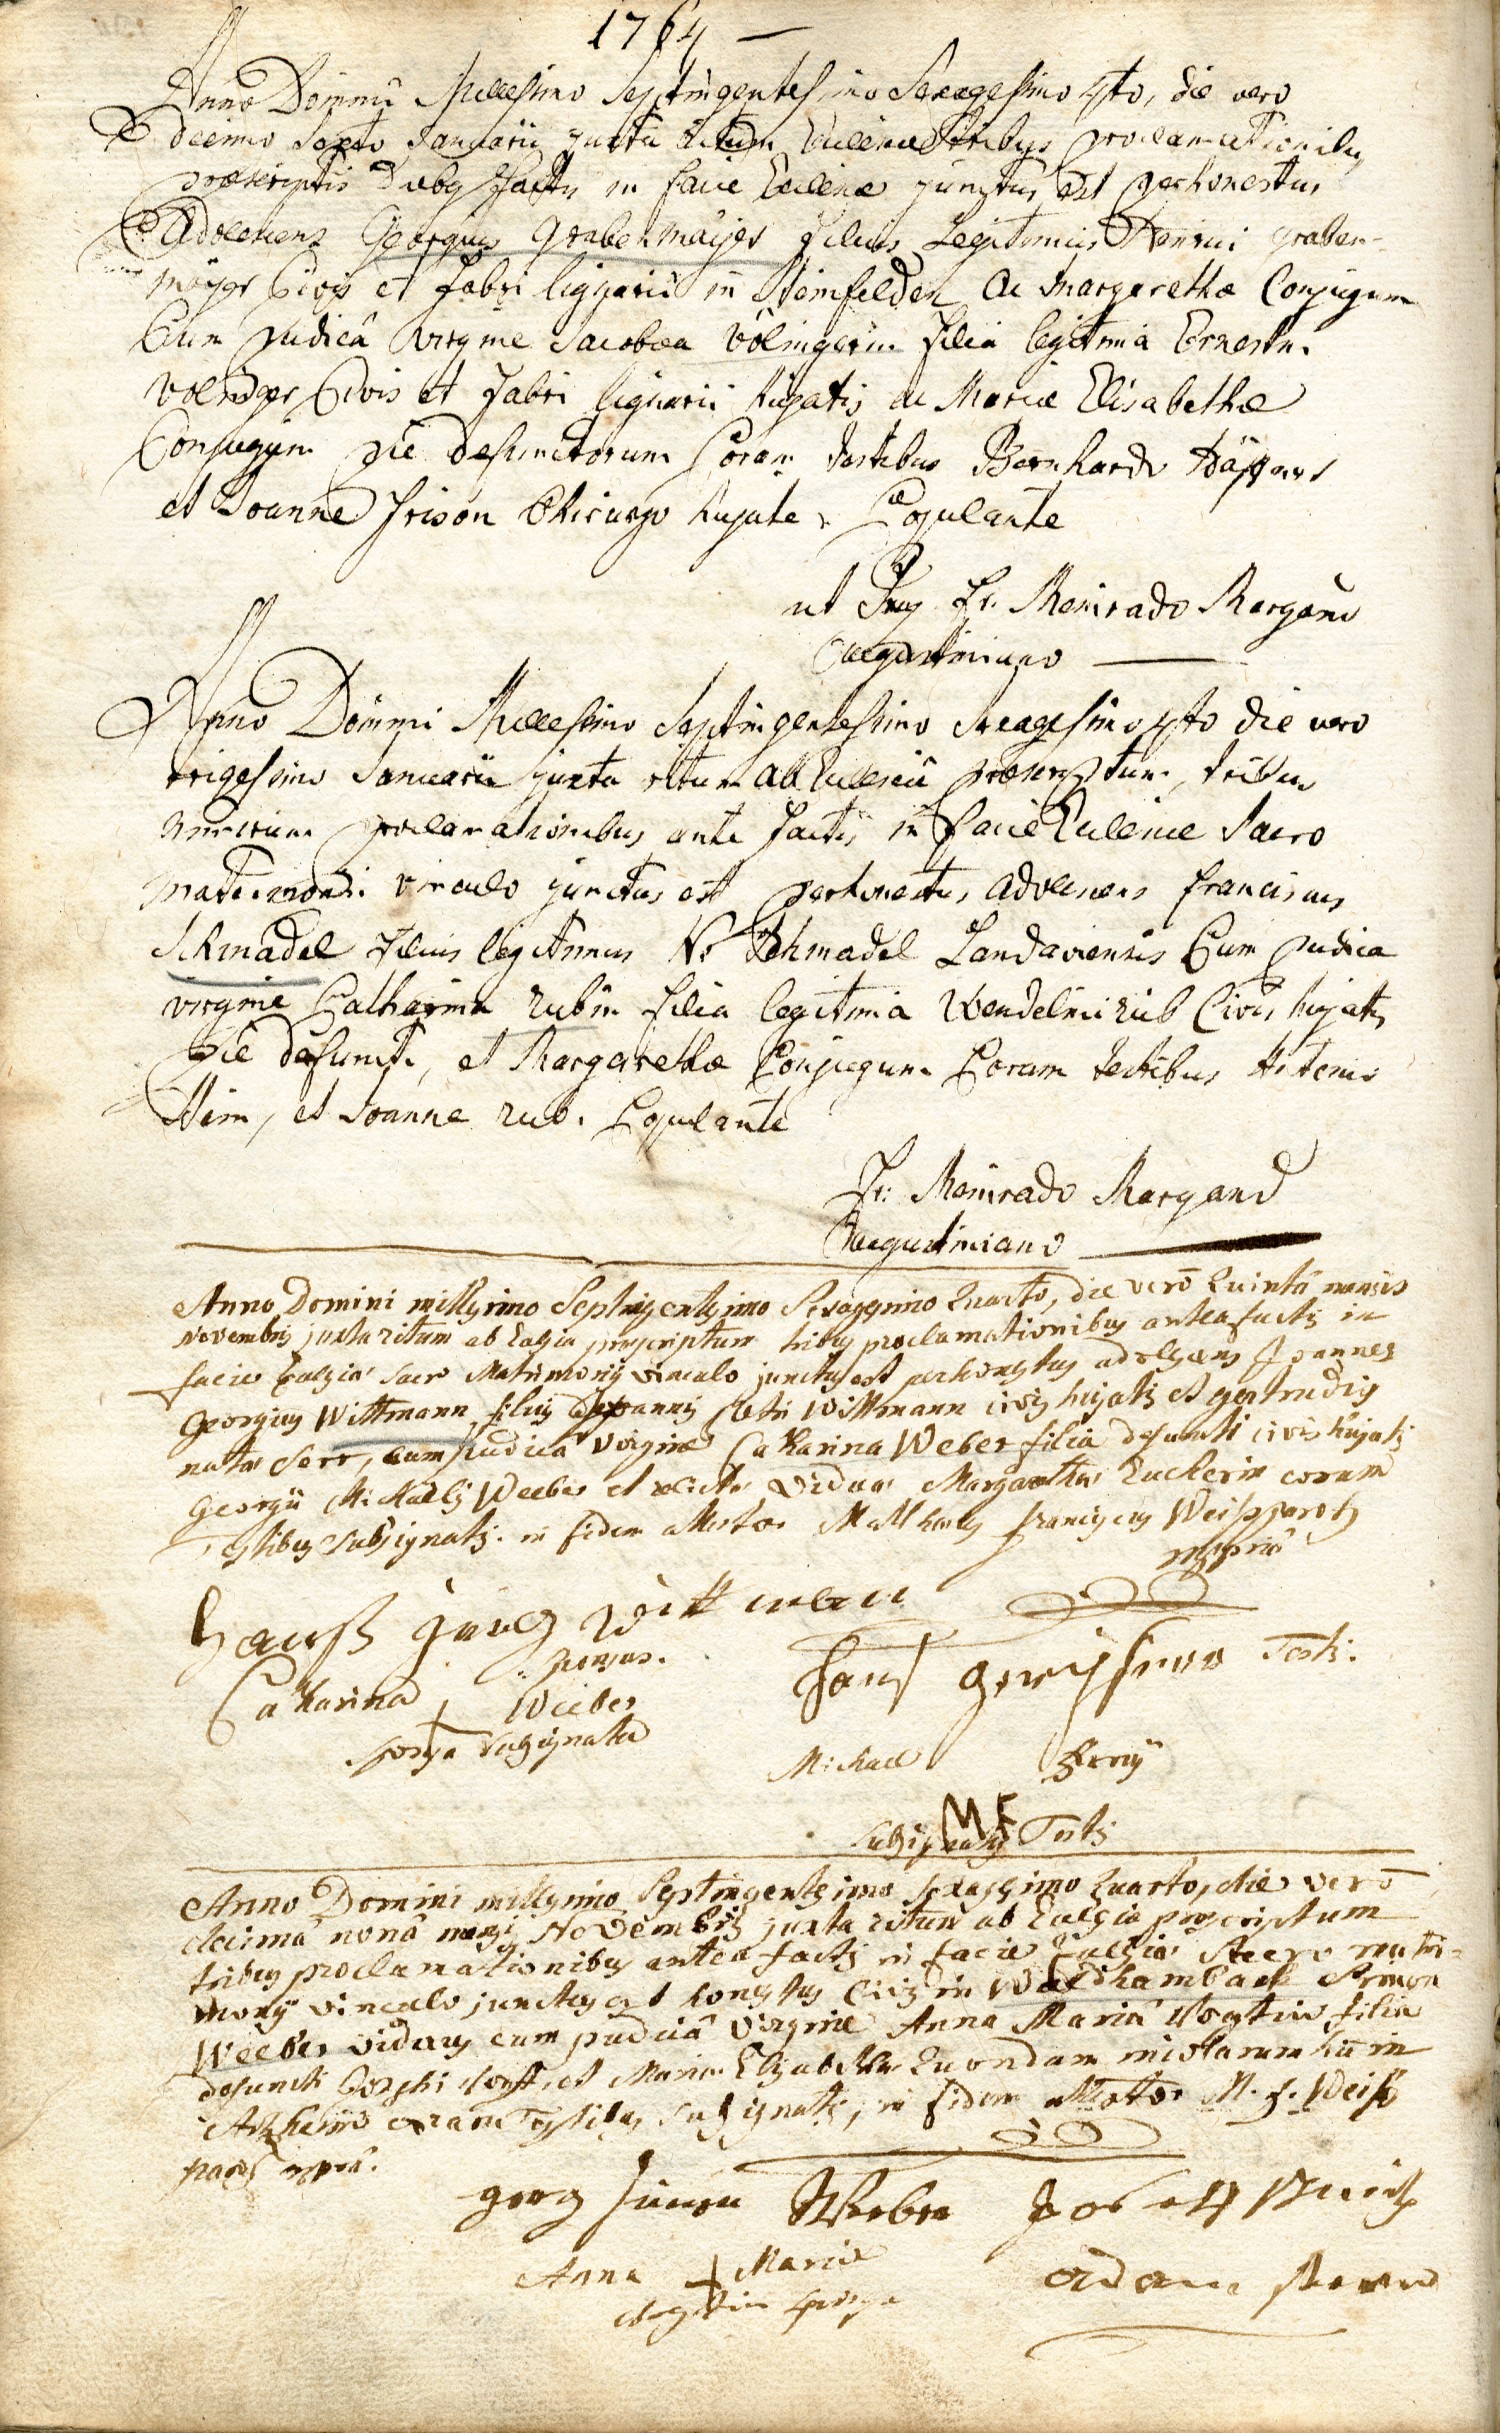 1764 —
Anno Domini Millesimo Septingentesimo Sexagesimo 4to, die vero
decimo Sexto Januarii juxta ritum Ecclesiae tribus proclamationibus
praescriptis factis in facie Ecclesiae junctus est perhonestus
Adolescens Georgius Grabenmaÿer Filius Legitimus Henrici graben-
maÿer Civis et Fabri lignarii in Steinfelden ac Margarethae Conjugum
Cum pudicâ virgine Jacobea Völingerin filia legitima Ernesti
Völinger Civis et Fabri lignarii hujatis ac Mariae Elisabethae
Conjugum pie defunctorum Coram testibus Bernhardo
et Joanne Frison Chirurgo hujate. Copulante
ut Fr. Meinrado Morgand
Augustiniano —
Anno Domini Millesimo Septingentesimo Sexagesimo 4to die vero
trigesimo Januarii juxta ritum ab Ecclesiâ praescriptum, tribus
proclamationibus ante factis in facie Ecclesiae Sacro
matrimonii vinculo junctus est perhonestus adolescens Franciscus
Schmadel Filius legitimus N. Schmadel Landaviensis Cum pudica
virgine Catharina Rubin filia legitima Wendelini Rub Civis hujatis
pie defuncti, et Margarethae Conjugum Coram testibus Antonio
et Joanne Rub. Copulante
Fr: Meinrado Morgand
Augustiniano —
Anno Domini millesimo Septingentesimo Sexagesimo Quarto, die verò Quintâ mensis
Novembris juxta ritum ab Ecclesia praescriptum tribus proclamationibus antea factis in
facie Ecclesiae Sacro Matrimonij vinculo junctus est perhonestus adolescens Joannes
Georgius Wittmann filius Joannis Petri Wittmann civis hujatis et gertrudis
natae Serr, cum pudica virgine Catharina Weber filia defuncti civis hujatis
Georgii Michaelis Weeber et relictae viduae Margarethae Zuckerin coram
Testibus subsignatis. in fidem attestor Matthaeus Franciscus Weissparth
mppriâ
Hanß Jörg Wittmann
sponsus.
Catharina + Weeber
sponsa subsignata
Hans Testis.
Michael
MF
subsignans Testis
Anno Domini millesimo Septingentesimo Sexagesimo Quarto, die verò
decimâ nonâ mensis Novembris juxta ritum ab Ecclesia praescriptum
tribus proclamationibus antea factis in facie Ecclesiae Sacro matri-
monij vinculo junctus est honestus civis in Waldhambach Simon
Weeber viduus cum pudicâ virgine Anna Mariâ Vogtin filia
defuncti Vogt, et Mariae Elisabethae quondam incolarum in
Arzheim coram Testibus subsignatis, in fidem attestor M. F. Weiß
parth mppriâ.
georg simon Weber Joseph
Anna + Maria
Vogtin sponsa
adam